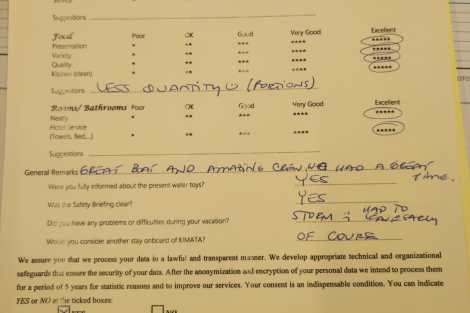 Suggestions
Food Poor OK Good Very Good Excellent
Presentation * ** *** **** *****
Variety * ** *** **** *****
Quality * ** *** **** *****
Kitchen (clean) * ** *** **** *****
Suggestions LESS QUANTITY (PORTIONS)
Rooms/Bathrooms Poor OK Good Very Good Excellent
Neatly * ** *** **** *****
Hotel Service
(Towels, Bed,..) * ** *** **** *****
Suggestions
General Remarks GREAT BOAT AND AMAZING CREW. WE HAD A GREAT TIME.
Were you fully informed about the present water toys? YES
Was the Safety Briefing clear? YES
Did you have any problems or difficulties during your vacation? STORM : HAD TO LEAVE EARLY
Would you consider another stay onboard of KIMATA? OF COURSE
We assure you that we process your data in a lawful and transparent manner. We develop appropriate technical and organizational
safeguards that ensure the security of your data. After the anonymization and encryption of your personal data we intend to process them
for a period of 5 years for statistic reasons and to improve our services. Your consent is an indispensable condition. You can indicate
YES or NO in the ticked boxes:
YES NO